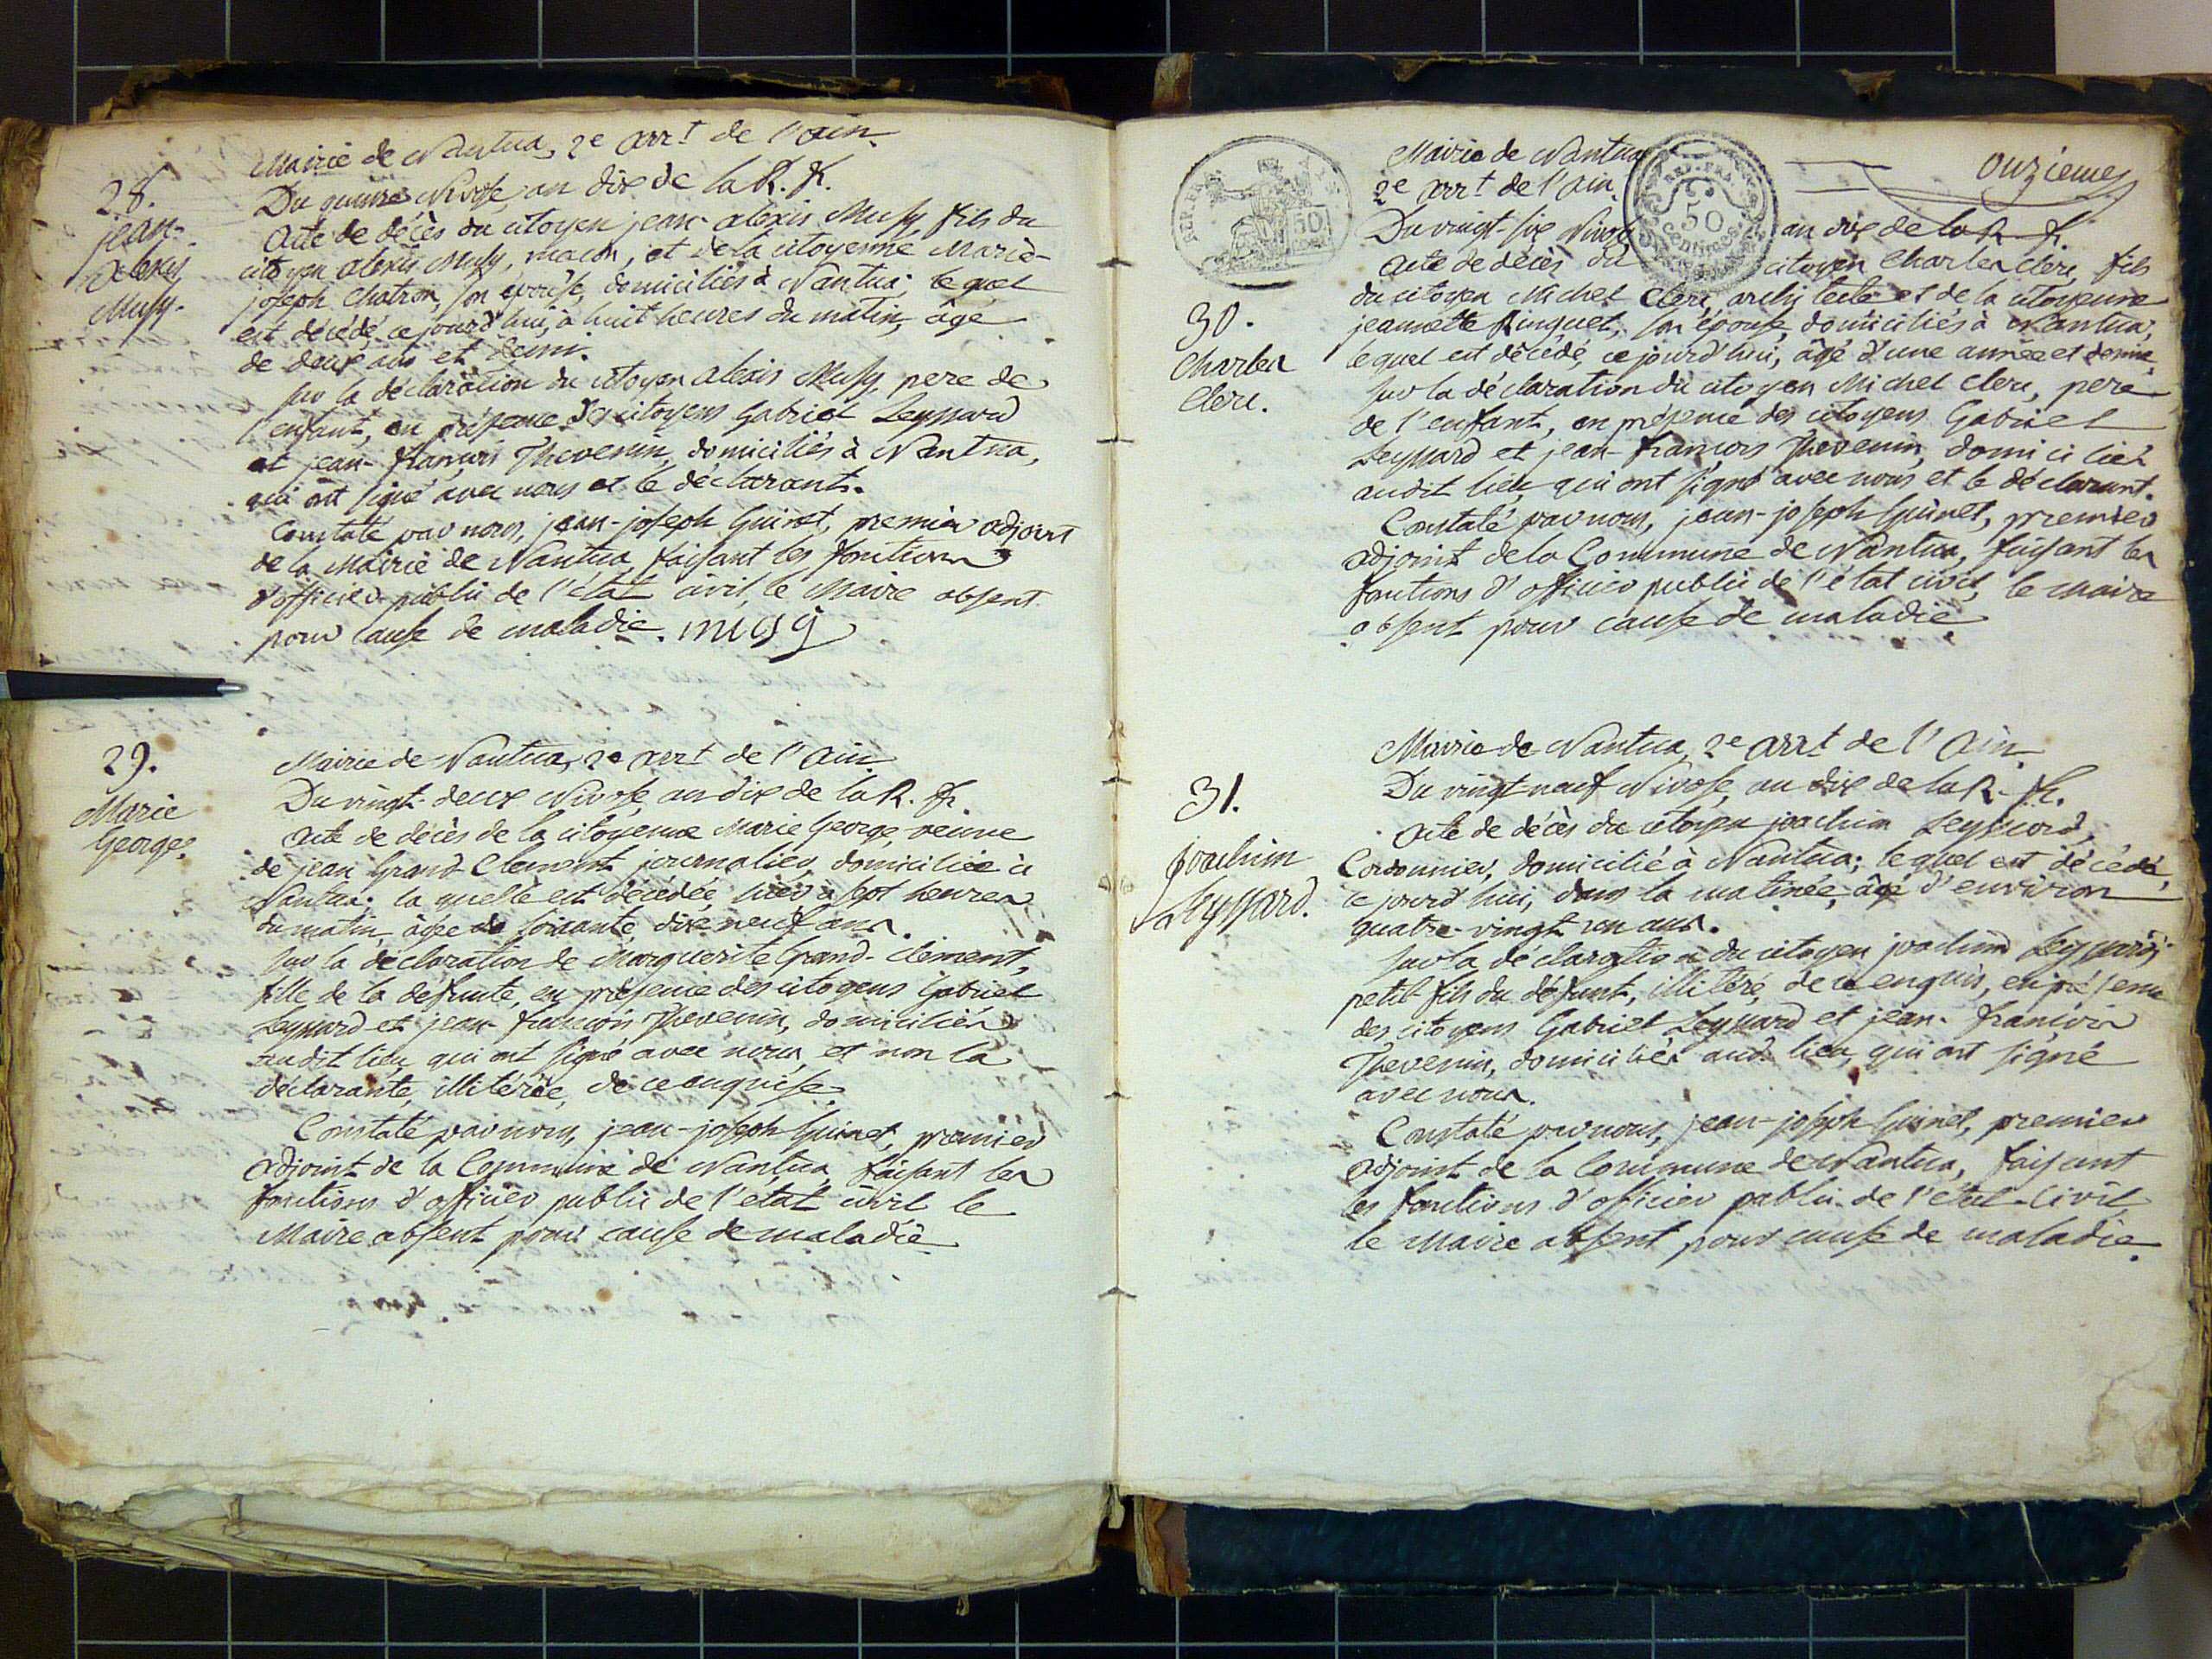 Mairie de Nantua, 2e arrt de l'ain.
28.
jean-
alexis
Mussy.
Du quinze Nivose, an dix de la R. F.
Acte de décès du citoyen jean-alexis Mussy, fils du
citoyen alexis Mussy, macon, et de la citoyenne Marie-
joseph Chatron, son épouse, domiciliés à Nantua; lequel
est décédé ce jourd'hui, à huit heures du matin, âgé
de deux ans et demi.
Sur la déclaration du citoyen alexis Mussy, pere de
l'enfant, en présence des citoyens Gabriel Leyssard
et jean-françois Thevenin, domiciliés à Nantua,
qui ont signé avec nous et le déclarant.
Constaté par nous, jean-joseph Guinet, premier adjoint
de la Mairie de Nantua, faisant les fonctions
d'officier public de l'état civil, le Maire absent
pour cause de maladie. musy
29.
Marie
George.
Mairie de Nantua, 2e arrt de l'ain.
Du vingt-deux Nivose, an dix de la R. F.
Acte de décès de la citoyenne Marie George, veuve
de jean Grand-Clement journalier, domiciliée à
Nantua; la quelle est décédée, hier à sept heures
du matin, âgée de soixante dix neuf ans.
Sur la déclaration de Marguerite Grand-Clément,
fille de la défunte, en présence des citoyens Gabriel
Leyssard et jean-françois Thevenin, domiciliés
audit lieu, qui ont signé avec nous, et non la
déclarante, illitérée, de ce enquise.
Constaté par nous, jean-joseph Guinet, premier
adjoint de la Commune de Nantua, faisant les
fonctions d'officier public de l'etat civil le
Maire absent pour cause de maladie
REP. FRA.
50
REP. FRA.
50
centimes
onzieme
Mairie de Nantua
2e arrt de l'ain.
Du vingt-six Nivose an dix de la R. F.
30.
Charles
Clerc.
Acte de décès du citoyen Charles Clerc, fils
du citoyen Michel Clerc, architecte et de la citoyenne
jeannette Ringuet, son épouse, domiciliés à Nantua;
lequel est décédé, ce jourd'hui, âgé d'une année et demie,
Sur la déclaration du citoyen Michel Clerc, pere
de l'enfant, en présence des citoyens Gabriel
Leyssard et jean-francois Thevenin, domiciliés
audit lieu, qui ont signé avec nous et le déclarant.
Constaté par nous, jean-joseph Guinet, premier
adjoint de la Commune de Nantua, faisant les
fonctions d'officier public de l'état civil, le maire
absent pour cause de maladie
31.
Joachim
Leyssard.
Mairie de Nantua, 2e arrt de l'Ain.
Du vingt neuf Nivose, an dix de la R. F.
Acte de décès du citoyen joachim Leyssard,
Cordonnier, domicilié à Nantua; lequel est décédé,
ce jourd'hui, dans la matinée, âgé d'environ
quatre-vingt un ans.
Sur la déclaration du citoyen joachim Leyssard,
petit-fils du défunt, illitéré, de ce enquis, en présence
des citoyens Gabriel Leyssard et jean-françois
Thevenin, domiciliés audt lieu, qui ont signé
avec nous.
Constaté par nous, jean-joseph Guinet, premier
adjoint de la Commune de Nantua, faisant
les fonctions d'officier public de l'état-civil
le Maire absent pour cause de maladie.